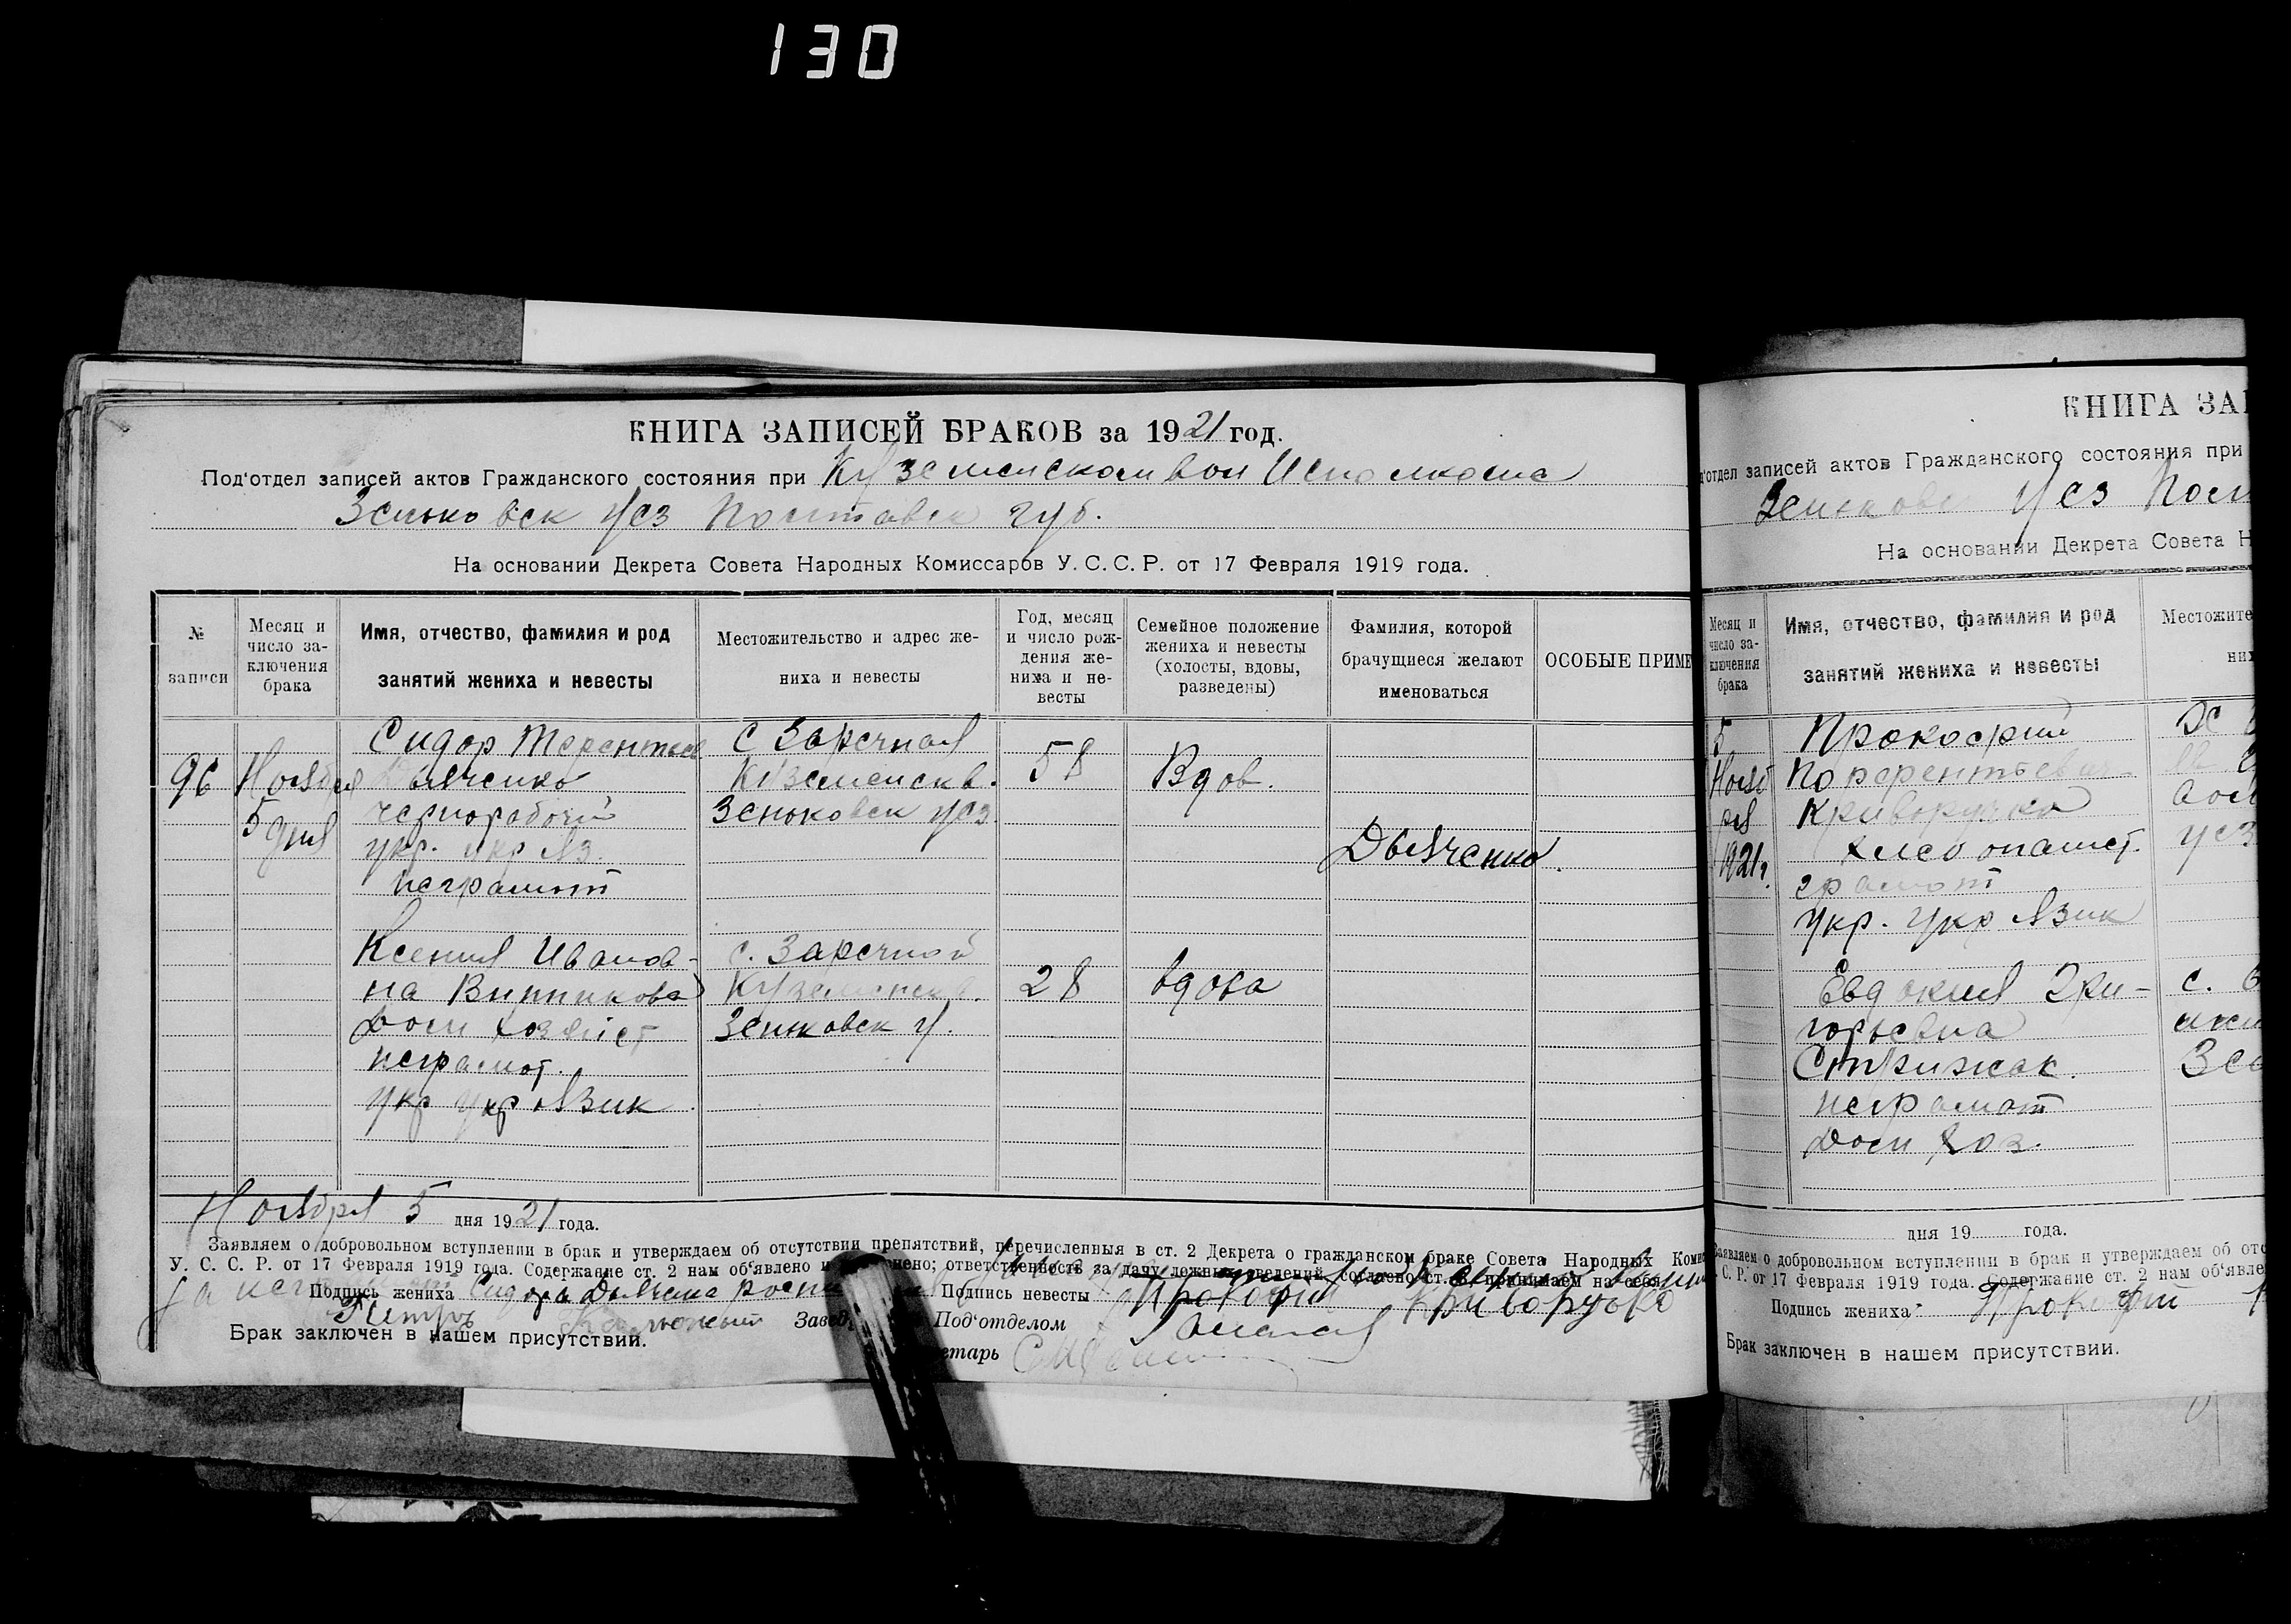 130
КНИГА ЗАПИСЕЙ БРАКОВ за 1921 год.
Под'отдел записей актов Гражданского состояния при Куземенском вол Исполкоме
Зеньковск уез Полтавск губ.
На основании Декрета Совета Народных Комиссаров У. С. С. Р. от 17 Февраля 1919 года.
№ записи
Месяц и число заключения брака
Имя, отчество, фамилия и род занятий жениха и невесты
Местожительство и адрес жениха и невесты
Год, месяц и число рождения жениха и невесты
Семейное положение жениха и невесты (холосты, вдовы, разведены)
Фамилия, которой брачущиеся желают именоваться
ОСОБЫЕ ПРИМЕ
96
Ноября
5 дня
Сидор Терентьев
Дьяченко
чернорабочий
укр. укр яз.
неграмот
С Заречная
Куземенск в.
Зеньковск уез.
58
Вдов.
Дьяченко.
Ксения Иванов-
на Винникова
дом хозяйст
неграмот.
укр укр язик
с. Заречной
Куземенск в.
Зеньковск у.
28
вдова
Ноября 5 дня 1921 года.
Заявляем о добровольном вступлении в брак и утверждаем об отсутствии препятствий, перечисленныя в ст. 2 Декрета о гражданском браке Совета Народных Комис
У. С. С. Р. от 17 Февраля 1919 года. Содержание ст. 2 нам об'явлено и нено; ответственность за дачу ложных сведений согласно ст. принимаем на себя
Подпись жениха Сидора Дьяченка
Подпись невесты Прокофий Криворучко
Петръ Калюжный
Завед Под'отделом
Брак заключен в нашем присутствии.
етарь
КНИГА ЗАП
отдел записей актов Гражданского состояния при
Зеньковск уез Пол
На основании Декрета Совета Н
Месяц и число заключения брака
Имя, отчество, фамилия и род занятий жениха и невесты
Местожите
них
5
Нояб
ря
1921г.
Прокофий
Порферентьевич
Криворучко
хлебопашест.
грамот
укр. укр язик
уез
Евдокия Гри-
горьевна
Стрижак.
неграмот
дом хоз.
с.
Зе
дня 19 года.
Заявляем о добровольном вступлении в брак и утверждаем об отс
С. Р. от 17 Февраля 1919 года. Содержание ст. 2 нам об'явле
Подпись жениха: Прокофий
Брак заключен в нашем присутствии.